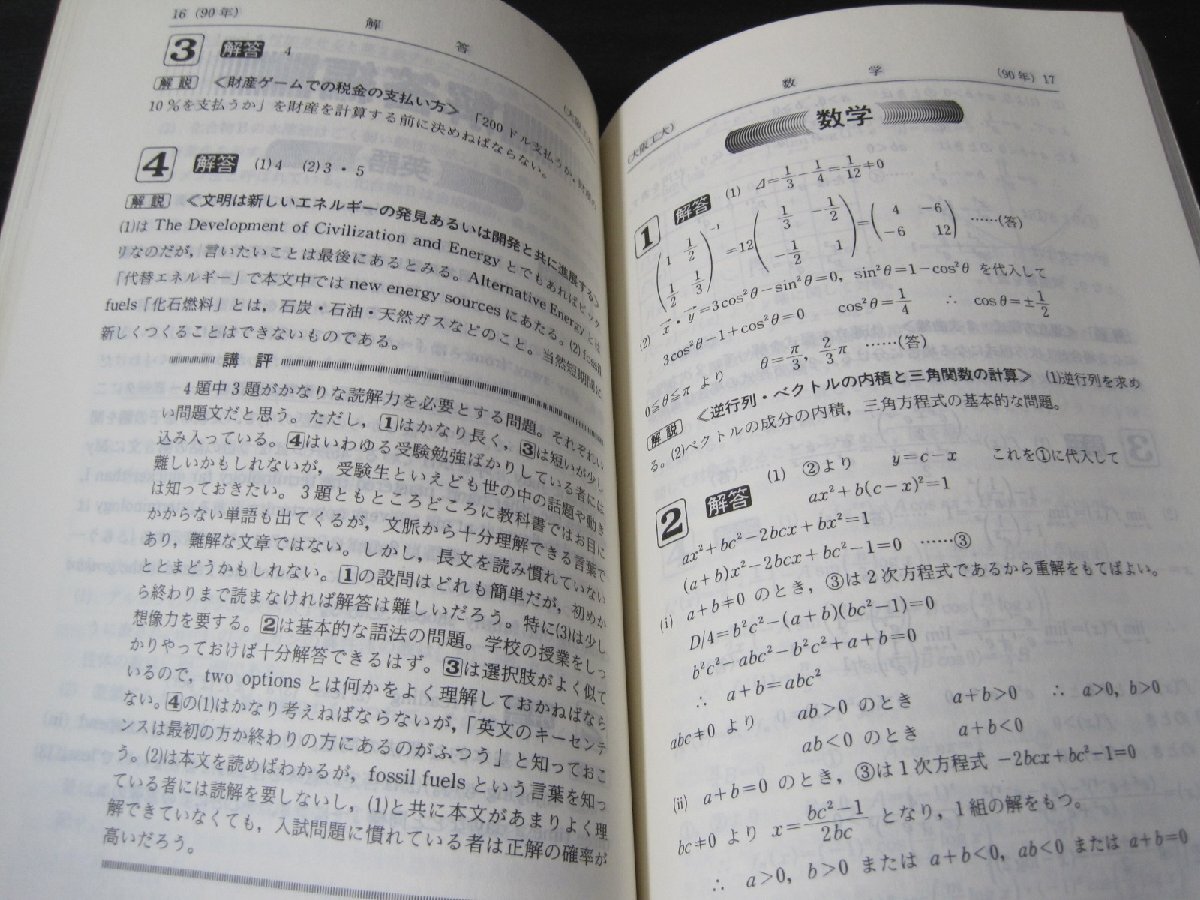 16 (90年) 解 答 (大阪工大)
3 解答 4
解説 〈財産ゲームでの税金の支払い方〉 「200ドル支払うか,
10%を支払うか」を財産を計算する前に決めねばならない。
4 解答 (1) 4 (2) 3・5
解説 〈文明は新しいエネルギーの発見あるいは開発と共に進展する〉
(1)は The Development of Civilization and Energy とでもあればピッタ
リなのだが,言いたいことは最後にあるとみる。Alternative Energy には
「代替エネルギー」で本文中では new energy sources にあたる。(2) fossil
fuels「化石燃料」とは,石炭・石油・天然ガスなどのこと。当然短期間に
新しくつくることはできないものである。
講 評
4題中3題がかなりな読解力を必要とする問題。それぞれいい
い問題文だと思う。ただし,1はかなり長く,3は短いが少し
込み入っている。4はいわゆる受験勉強ばかりしている者には
難しいかもしれないが,受験生といえども世の中の話題や動き
は知っておきたい。3題ともところどころに教科書ではお目に
かからない単語も出てくるが,文脈から十分理解できる言葉で
あり,難解な文章ではない。しかし,長文を読み慣れていない
ととまどうかもしれない。1の設問はどれも簡単だが,初めか
ら終わりまで読まなければ解答は難しいだろう。特に(3)は少し
想像力を要する。2は基本的な語法の問題。学校の授業をしっ
かりやっておけば十分解答できるはず。3は選択肢がよく似て
いるので,two options とは何かをよく理解しておかねばなら
ない。4の(1)はかなり考えねばならないが,「英文のキーセンテ
ンスは最初の方か終わりの方にあるのがふつう」と知っておこ
う。(2)は本文を読めばわかるが,fossil fuels という言葉を知っ
ている者には読解を要しないし,(1)と共に本文があまりよく理
解できていなくても,入試問題に慣れている者は正解の確率が
高いだろう。
(大阪工大) 数 学 (90年) 17
数学
1 解答 (1) Δ=1/3-1/4=1/12≠0
(1 1/2 / 1/2 1/3)⁻¹=12(1/3 -1/2 / -1/2 1)=(4 -6 / -6 12) ……(答)
(2) x→・y→=3cos²θ-sin²θ=0, sin²θ=1-cos²θ を代入して
3cos²θ-1+cos²θ=0 cos²θ=1/4 ∴ cosθ=±1/2
0≦θ≦π より θ=π/3, 2/3π ……(答)
解説 〈逆行列・ベクトルの内積と三角関数の計算〉 (1)逆行列を求め
る。(2)ベクトルの成分の内積,三角方程式の基本的な問題。
2 解答 (1) ②より y=c-x これを①に代入して
ax²+b(c-x)²=1
ax²+bc²-2bcx+bx²=1
(a+b)x²-2bcx+bc²-1=0 ……③
(i) a+b≠0 のとき,③は2次方程式であるから重解をもてばよい。
D/4=b²c²-(a+b)(bc²-1)=0
b²c²-abc²-b²c²+a+b=0
∴ a+b=abc²
abc≠0 より ab>0 のとき a+b>0 ∴ a>0, b>0
ab<0 のとき a+b<0
(ii) a+b=0 のとき,③は1次方程式 -2bcx+bc²-1=0
bc≠0 より x=bc²-1/2bc となり,1組の解をもつ。
∴ a>0, b>0 または a+b<0, ab<0 または a+b=0